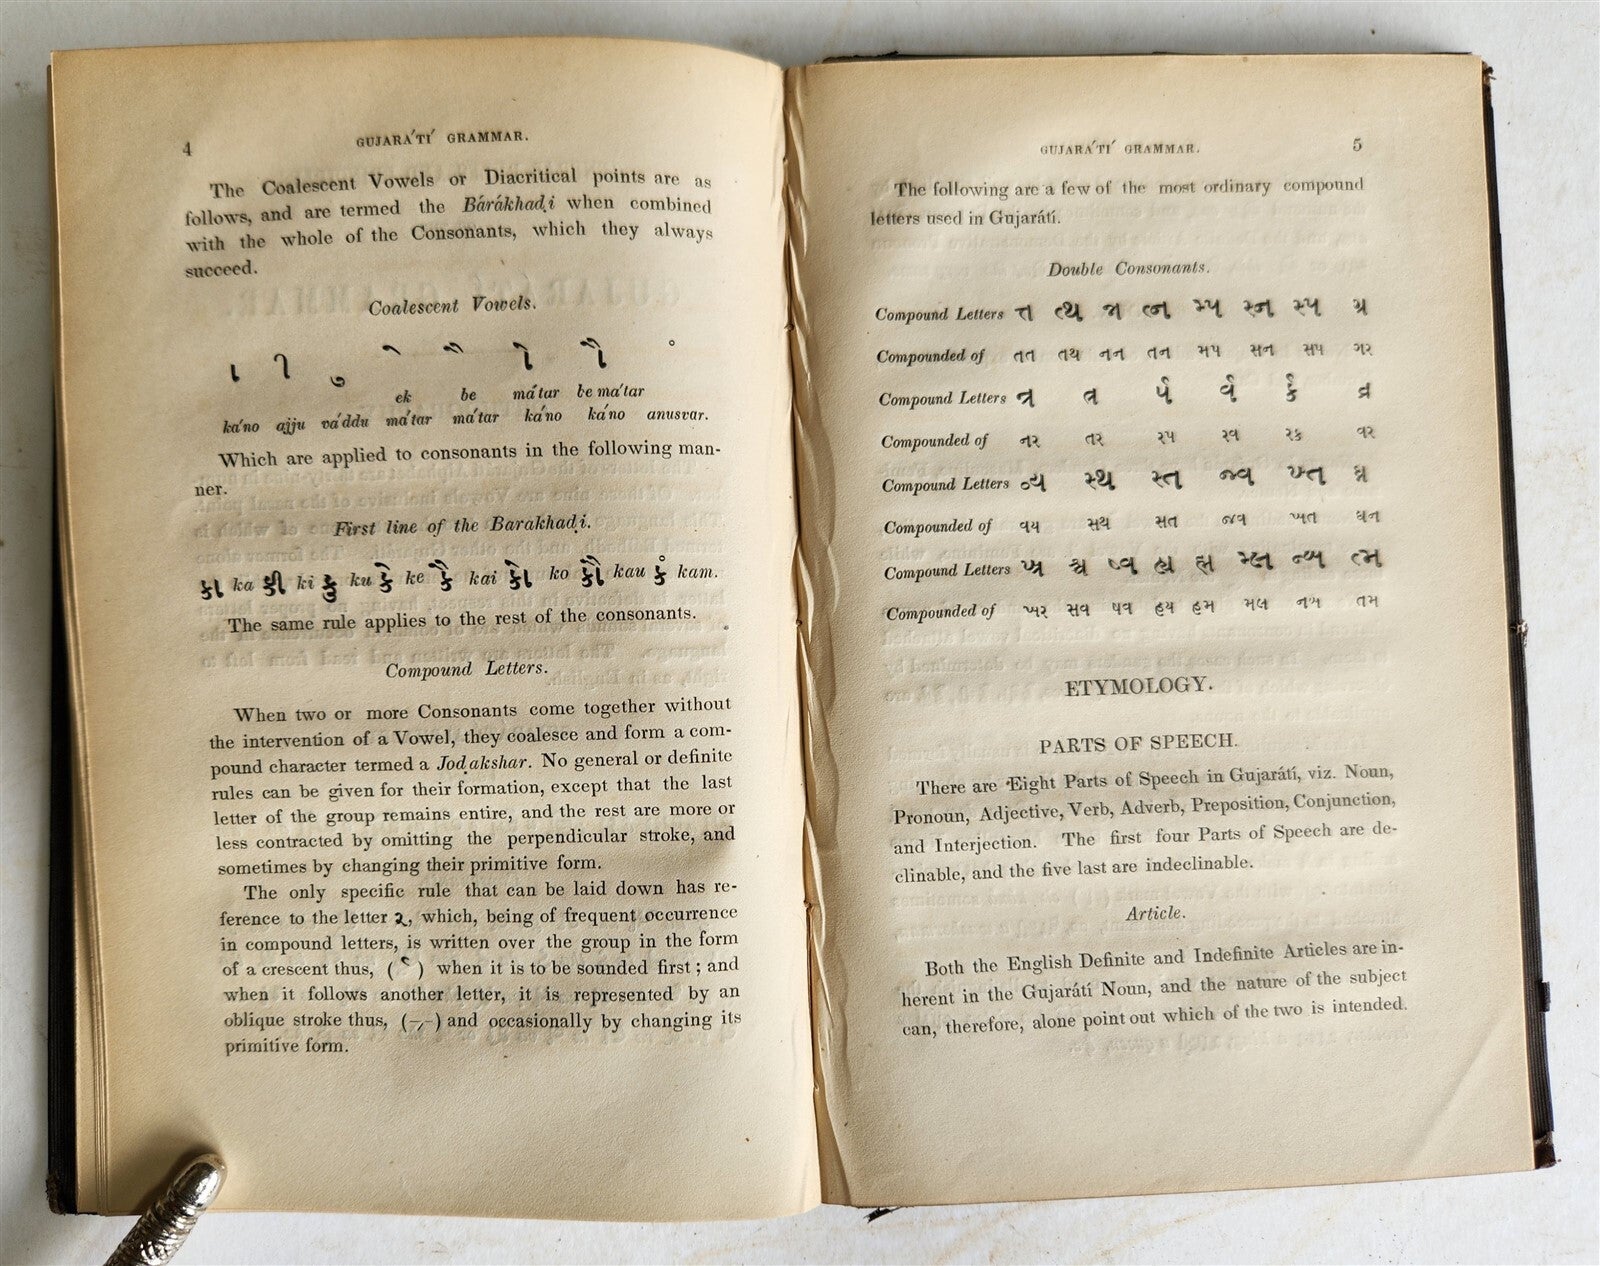 4
GUJARA´TI´ GRAMMAR.
The Coalescent Vowels or Diacritical points are as
follows, and are termed the Bárákhaḍi when combined
with the whole of the Consonants, which they always
succeed.
Coalescent Vowels.
ા ી ુ ે ૈ ો ૌ ં
ek be má´tar be ma´tar
ká´no ajju vá´ddu má´tar má´tar ká´no ká´no anusvar.
Which are applied to consonants in the following man-
ner.
First line of the Barakhaḍi.
કા ka કી ki કુ ku કે ke કૈ kai કો ko કૌ kau કં kam.
The same rule applies to the rest of the consonants.
Compound Letters.
When two or more Consonants come together without
the intervention of a Vowel, they coalesce and form a com-
pound character termed a Joḍakshar. No general or definite
rules can be given for their formation, except that the last
letter of the group remains entire, and the rest are more or
less contracted by omitting the perpendicular stroke, and
sometimes by changing their primitive form.
The only specific rule that can be laid down has re-
ference to the letter ર, which, being of frequent occurrence
in compound letters, is written over the group in the form
of a crescent thus, ( ) when it is to be sounded first; and
when it follows another letter, it is represented by an
oblique stroke thus, (-⁄-) and occasionally by changing its
primitive form.
GUJARA´TI´ GRAMMAR.
5
The following are a few of the most ordinary compound
letters used in Gujarátí.
Double Consonants.
Compound Letters ત્ત ત્થ ત્ન મ્પ સ્ન સ્પ ગ્ર
Compounded of તત તથ નન તન મપ સન સપ ગર
Compound Letters ન્ર ત્ર ર્પ ર્વ ર્ક વ્ર
Compounded of નર તર રપ રવ રક વર
Compound Letters વ્ય સ્થ સ્ત જ્વ ખ્ત ઘ્ન
Compounded of વય સથ સત જવ ખત ઘન
Compound Letters ખ્ર શ્વ ષ્વ હ્ય હ્મ મ્લ ન્ખ ત્મ
Compounded of ખર સવ ષવ હય હમ મલ નખ તમ
ETYMOLOGY.
PARTS OF SPEECH.
There are Eight Parts of Speech in Gujarátí, viz. Noun,
Pronoun, Adjective, Verb, Adverb, Preposition, Conjunction,
and Interjection. The first four Parts of Speech are de-
clinable, and the five last are indeclinable.
Article.
Both the English Definite and Indefinite Articles are in-
herent in the Gujarátí Noun, and the nature of the subject
can, therefore, alone point out which of the two is intended.